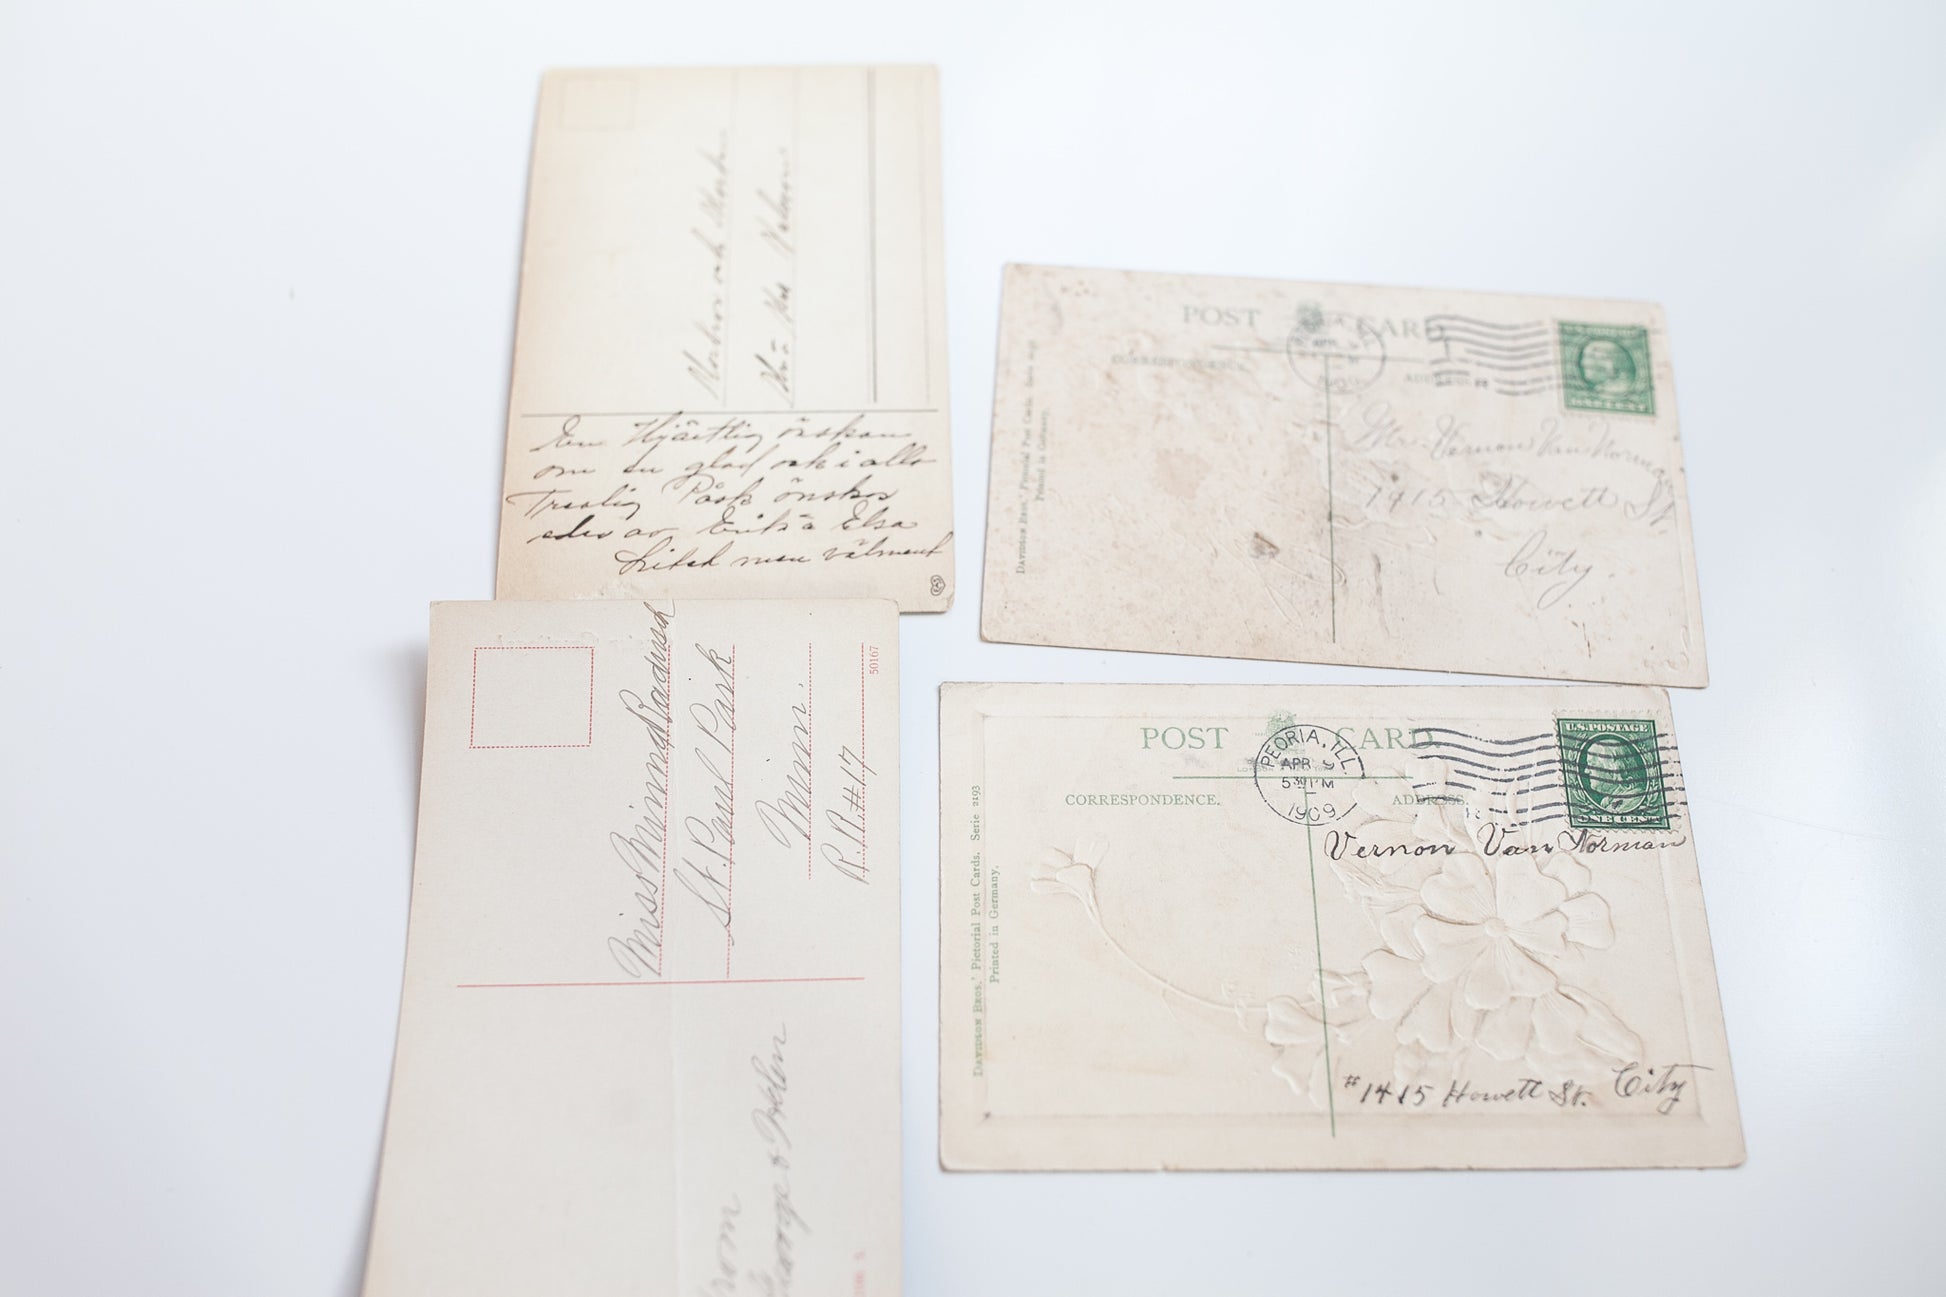 Morbror och Moster
En Hjärtlig önskan
om en glad och i allo
Trevlig Påsk önskas
eder av Erik & Elsa
Litet men välment
POST CARD
APR
1909
CORRESPONDENCE.
ADDRESS
Mr. Vernon Van Norman
1415 Howett St.
City.
Davidson Bros.' Pictorial Post Cards. Serie 2193
Printed in Germany.
Miss Minna
St. Paul Park
Minn.
R.R.#17
50167
From
George & Helen
POST CARD.
PEORIA, ILL.
APR 9
5 30 PM
1909
U.S. POSTAGE
ONE CENT
CORRESPONDENCE.
ADDRESS.
Vernon Van Norman
#1415 Howett St. City
Davidson Bros.' Pictorial Post Cards. Serie 2193
Printed in Germany.